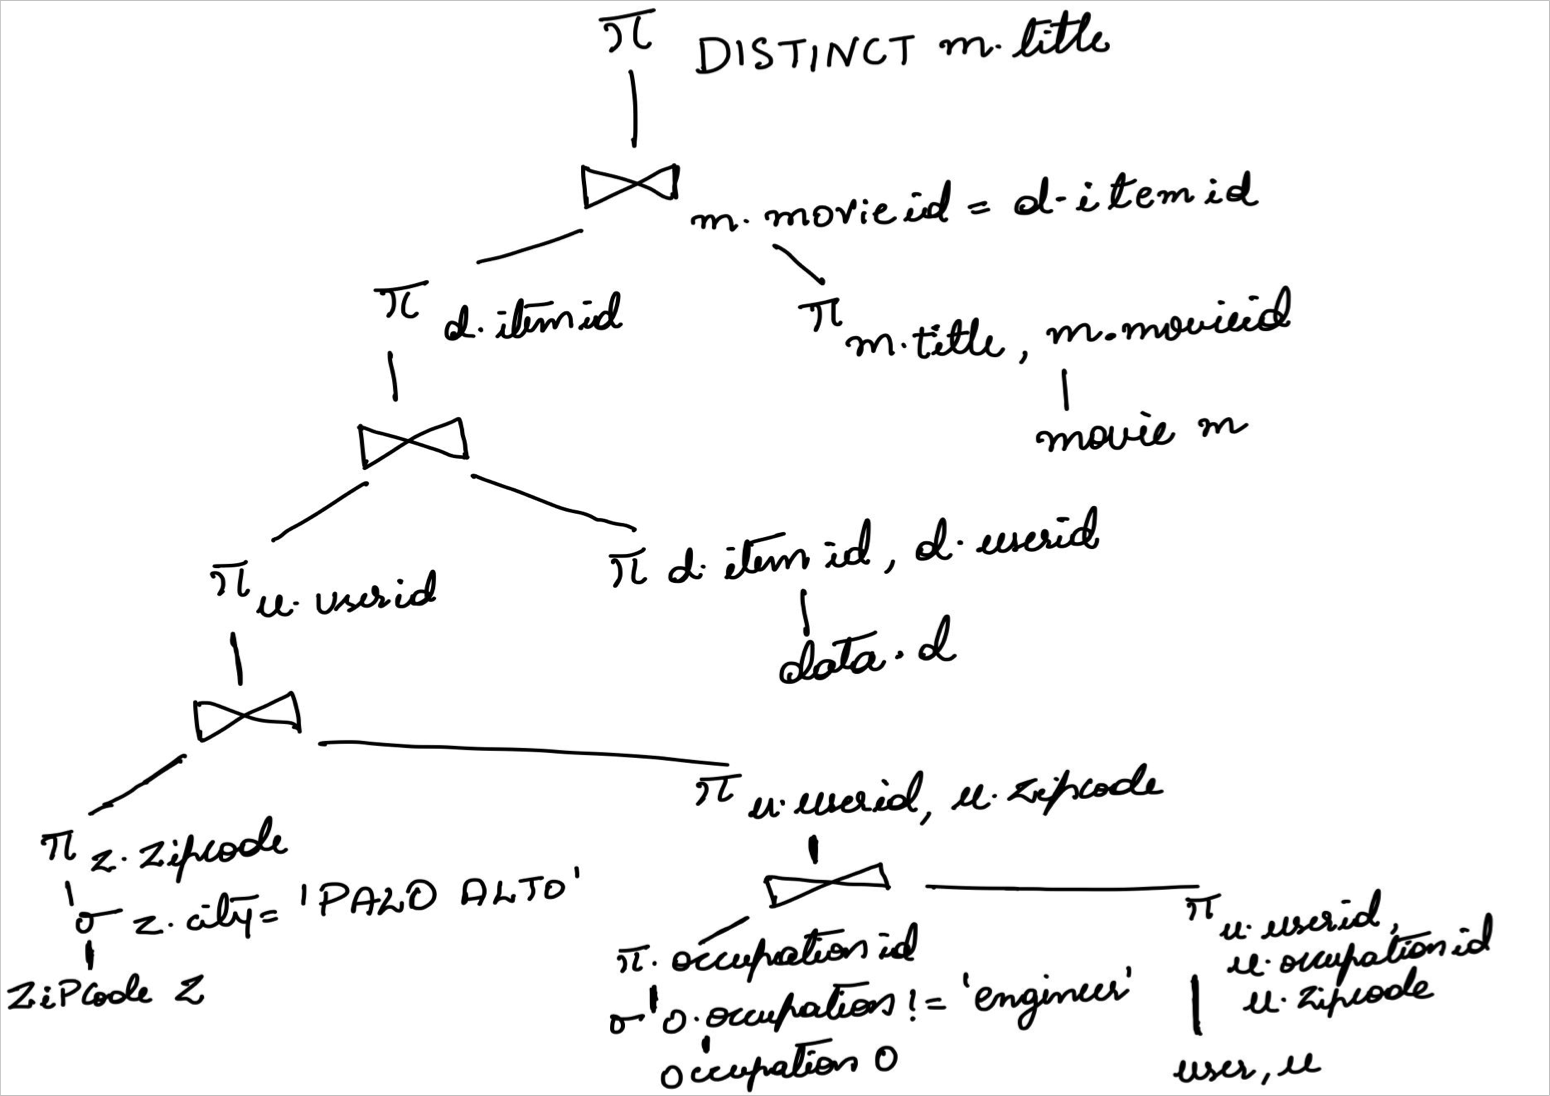 π DISTINCT m.title
⋈
m.movieid = d.itemid
π d.itemid
π m.title, m.movieid
movie m
⋈
π u.userid
π d.itemid, d.userid
data.d
⋈
π z.zipcode
π u.userid, u.zipcode
σ z.city= 'PALO ALTO'
zipcode z
⋈
π.occupationid
σ o.occupation != 'engineer'
occupation o
π u.userid,
u.occupationid
u.zipcode
user, u